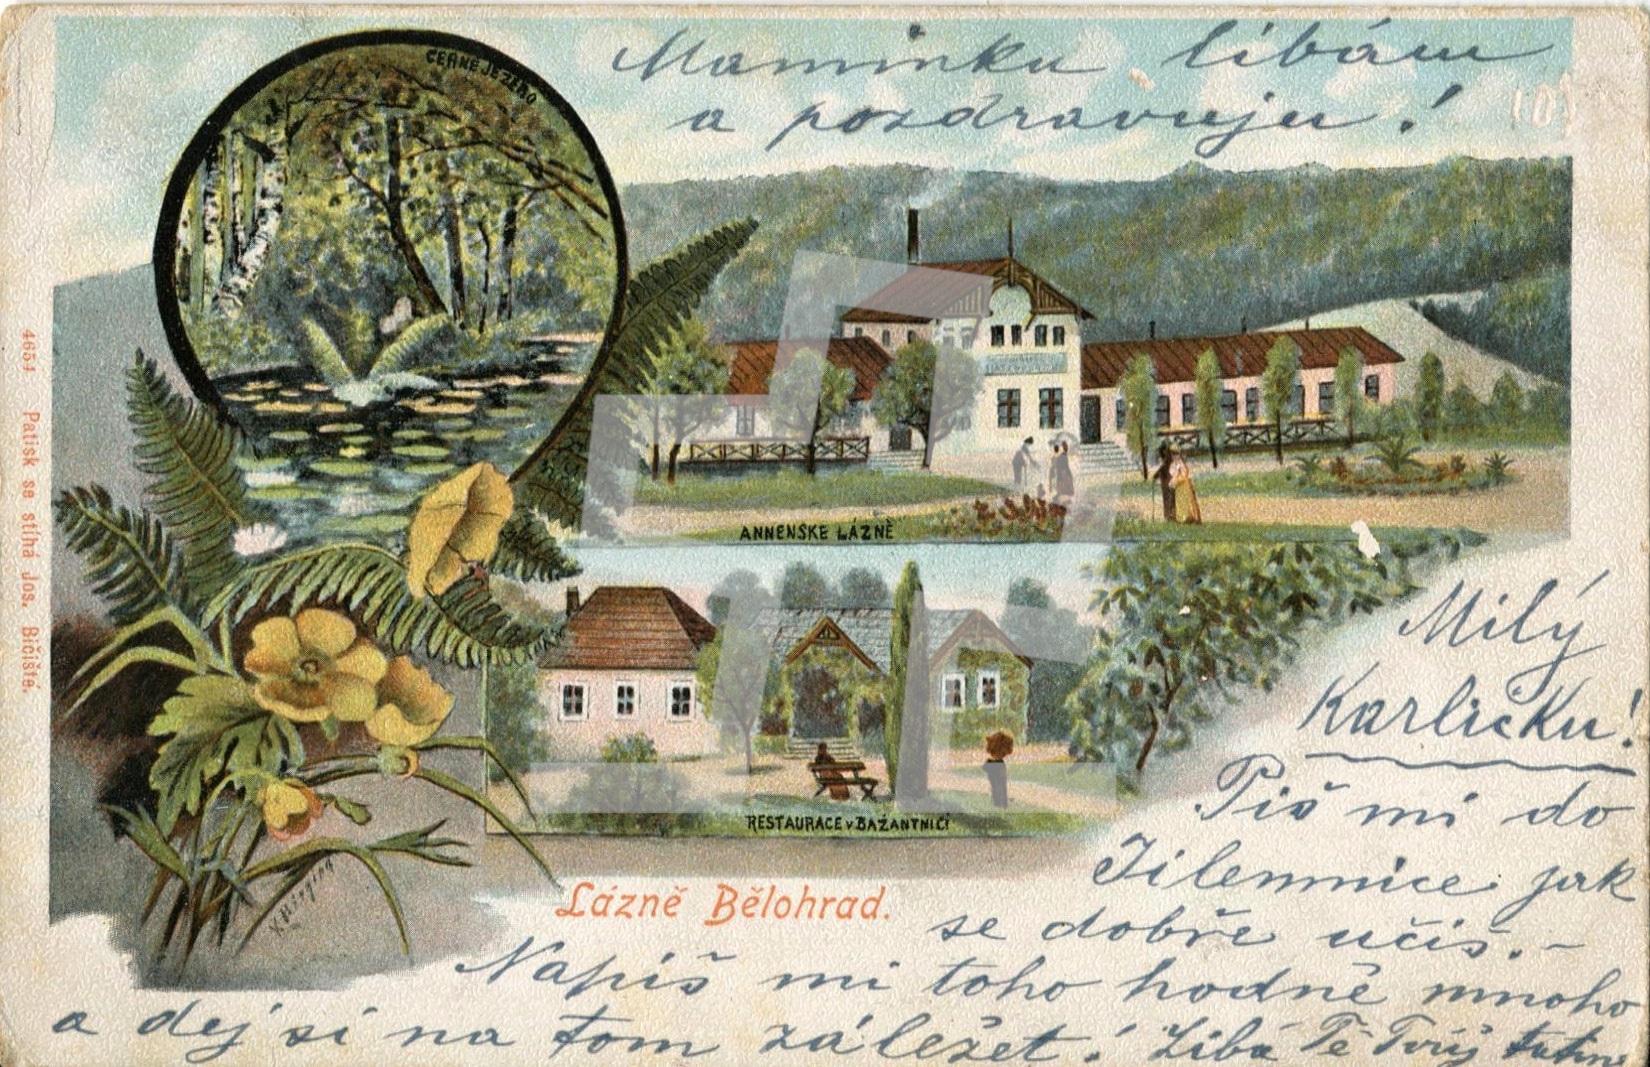 Maminku líbám
a pozdravuju!
ČERNÉ JEZERO
ANNENSKE LÁZNĚ
RESTAURACE v BAŽANTNICI
Lázně Bělohrad.
4654 Patisk se stíhá dos. Bičiště.
Milý
Karlíčku!
Piš mi do
Jilemnice jak
se dobře učíš. –
Napiš mi toho hodně mnoho
a dej si na tom záležet! Líbá Tě Tvůj